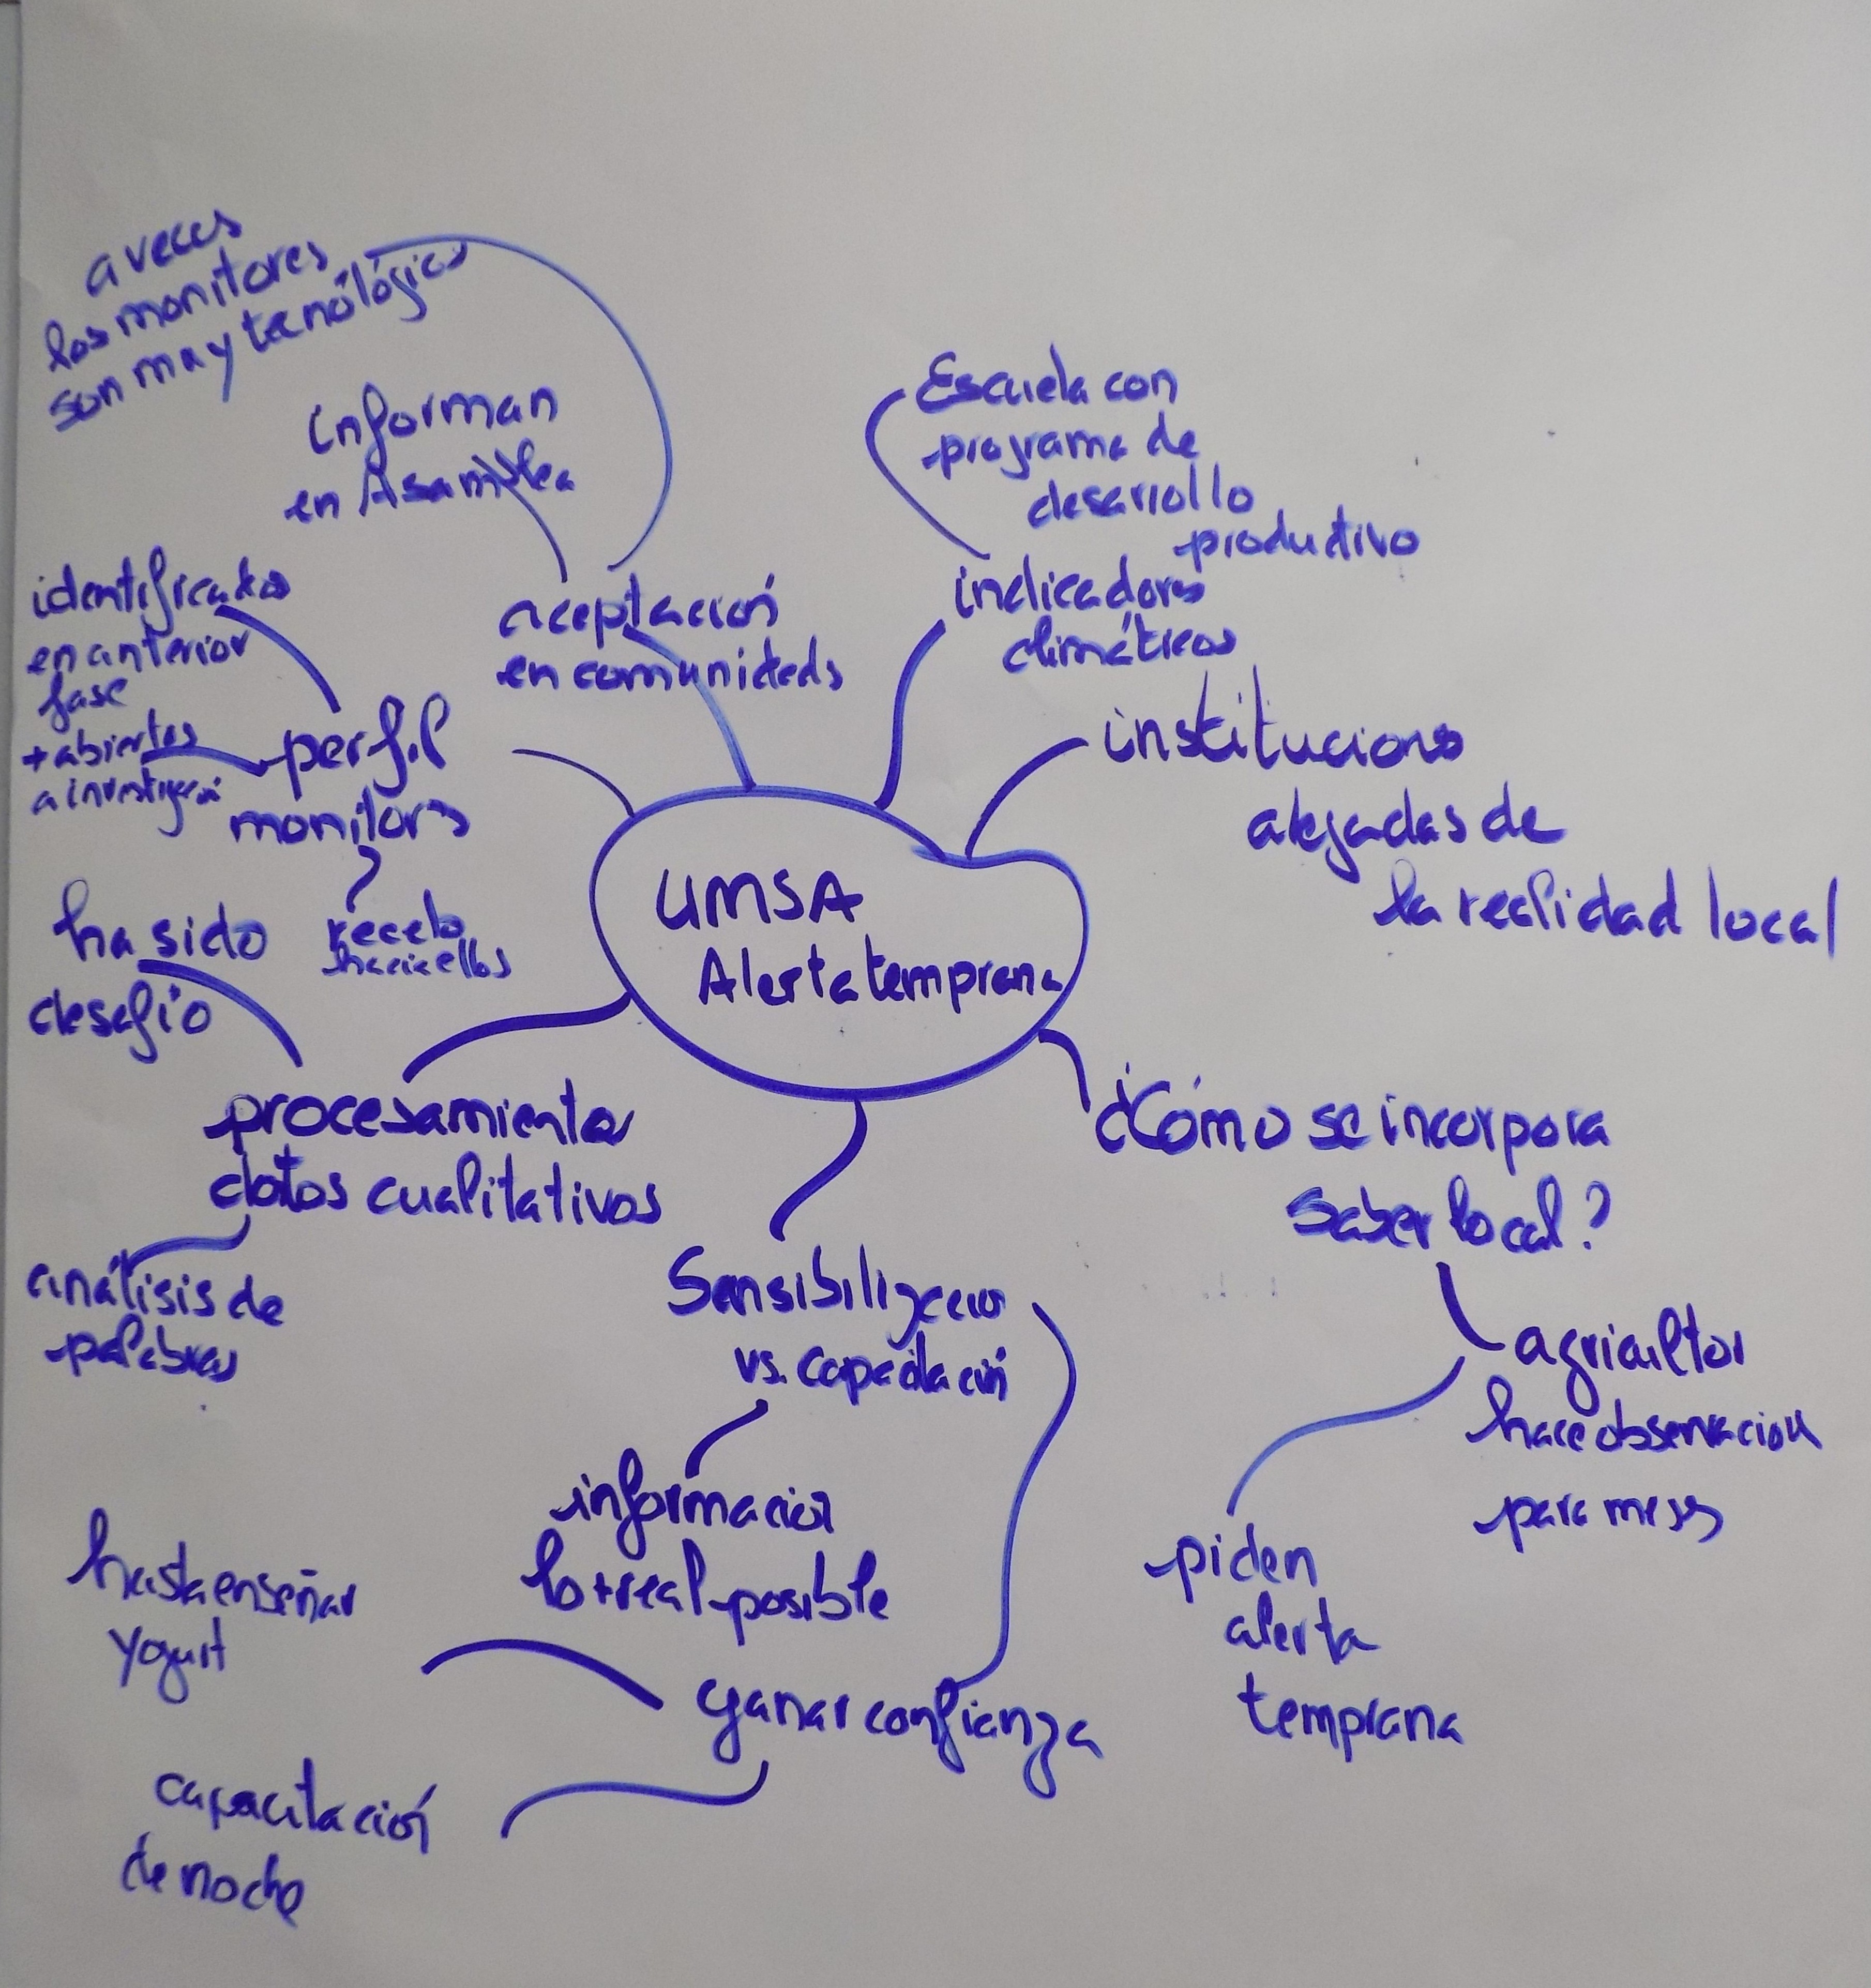 a veces
los monitores
son muy tecnólógicos
informan
en Asamblea
Escuela con
programa de
desarrollo
produtivo
identificados
en anterior
fase
+ abiertos
a investigar
aceptación
en comunidads
indicadores
climáticos
perfil
monitors
recelo
hacia ellos
institucions
alejadas de
la realidad local
UMSA
Alerta temprana
ha sido
desafío
procesamiento
datos cualitativos
análisis de
palabras
¿Cómo se incorpora
saber local?
agricultor
hace observacion
para meses
piden
alerta
temprana
Sensibilización
vs. capacitación
información
lo + real posible
ganar confianza
hasta enseñar
yogurt
capacitación
de noche